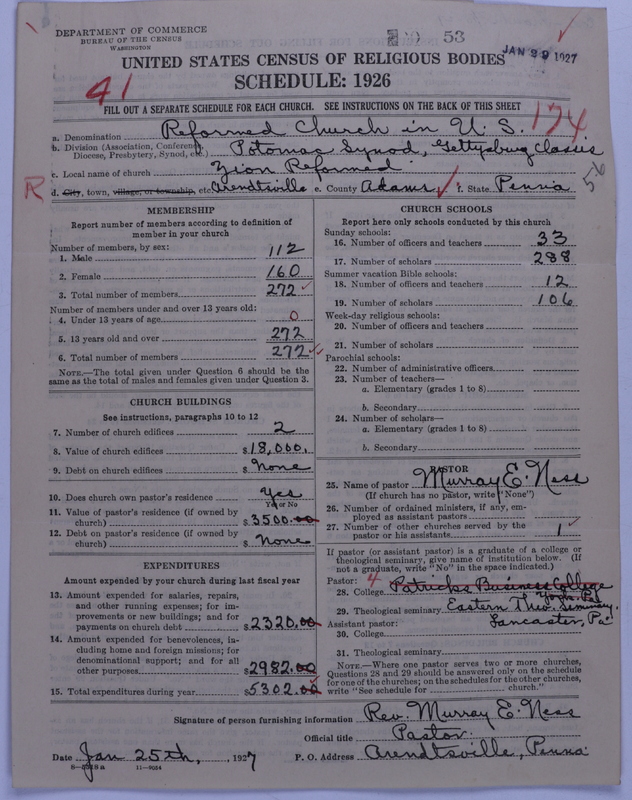 DEPARTMENT OF COMMERCE
BUREAU OF THE CENSUS
WASHINGTON
53
JAN 29 1927
UNITED STATES CENSUS OF RELIGIOUS BODIES
SCHEDULE: 1926
41
174
FILL OUT A SEPARATE SCHEDULE FOR EACH CHURCH. SEE INSTRUCTIONS ON THE BACK OF THIS SHEET
a. Denomination Reformed Church in U. S.
b. Division (Association, Conference, Diocese, Presbytery, Synod, etc.) Potomac Synod, Gettysburg Classis
c. Local name of church Zion Reformed
56
R
d. City, town, village, or township, etc. Arendtsville e. County Adams f. State Penna
MEMBERSHIP
Report number of members according to definition of
member in your church
Number of members, by sex:
1. Male 112
2. Female 160
3. Total number of members 272
Number of members under and over 13 years old:
4. Under 13 years of age 0
5. 13 years old and over 272
6. Total number of members 272
NOTE.—The total given under Question 6 should be the
same as the total of males and females given under Question 3.
CHURCH BUILDINGS
See instructions, paragraphs 10 to 12
7. Number of church edifices 2
8. Value of church edifices $18,000.
9. Debt on church edifices $None
10. Does church own pastor's residence Yes
Yes or No
11. Value of pastor's residence (if owned by
church) $3500.00
12. Debt on pastor's residence (if owned by
church) $None
EXPENDITURES
Amount expended by your church during last fiscal year
13. Amount expended for salaries, repairs,
and other running expenses; for im-
provements or new buildings; and for
payments on church debt $2320.00
14. Amount expended for benevolences, in-
cluding home and foreign missions; for
denominational support; and for all
other purposes $2982.00
15. Total expenditures during year $5302.00
CHURCH SCHOOLS
Report here only schools conducted by this church
Sunday schools:
16. Number of officers and teachers 33
17. Number of scholars 288
Summer vacation Bible schools:
18. Number of officers and teachers 12
19. Number of scholars 106
Week-day religious schools:
20. Number of officers and teachers
21. Number of scholars
Parochial schools:
22. Number of administrative officers
23. Number of teachers—
a. Elementary (grades 1 to 8)
b. Secondary
24. Number of scholars—
a. Elementary (grades 1 to 8)
b. Secondary
PASTOR
25. Name of pastor Murray E. Ness
(If church has no pastor, write "None")
26. Number of ordained ministers, if any, em-
ployed as assistant pastors
27. Number of other churches served by the
pastor or his assistants 1
If pastor (or assistant pastor) is a graduate of a college or
theological seminary, give name of institution below. (If
not a graduate, write "No" in the space indicated.)
Pastor: 4
28. College Patricks Business College
York, Pa.
29. Theological seminary Eastern Theo. Seminary.
Assistant pastor: Lancaster, Pa.
30. College
31. Theological seminary
NOTE.—Where one pastor serves two or more churches,
Questions 28 and 29 should be answered only on the schedule
for one of the churches; on the schedules for the other churches,
write "See schedule for church."
Signature of person furnishing information Rev. Murray E. Ness
Official title Pastor.
Date Jan 25th, 1927 P. O. Address Arendtsville, Penna.
11—9084